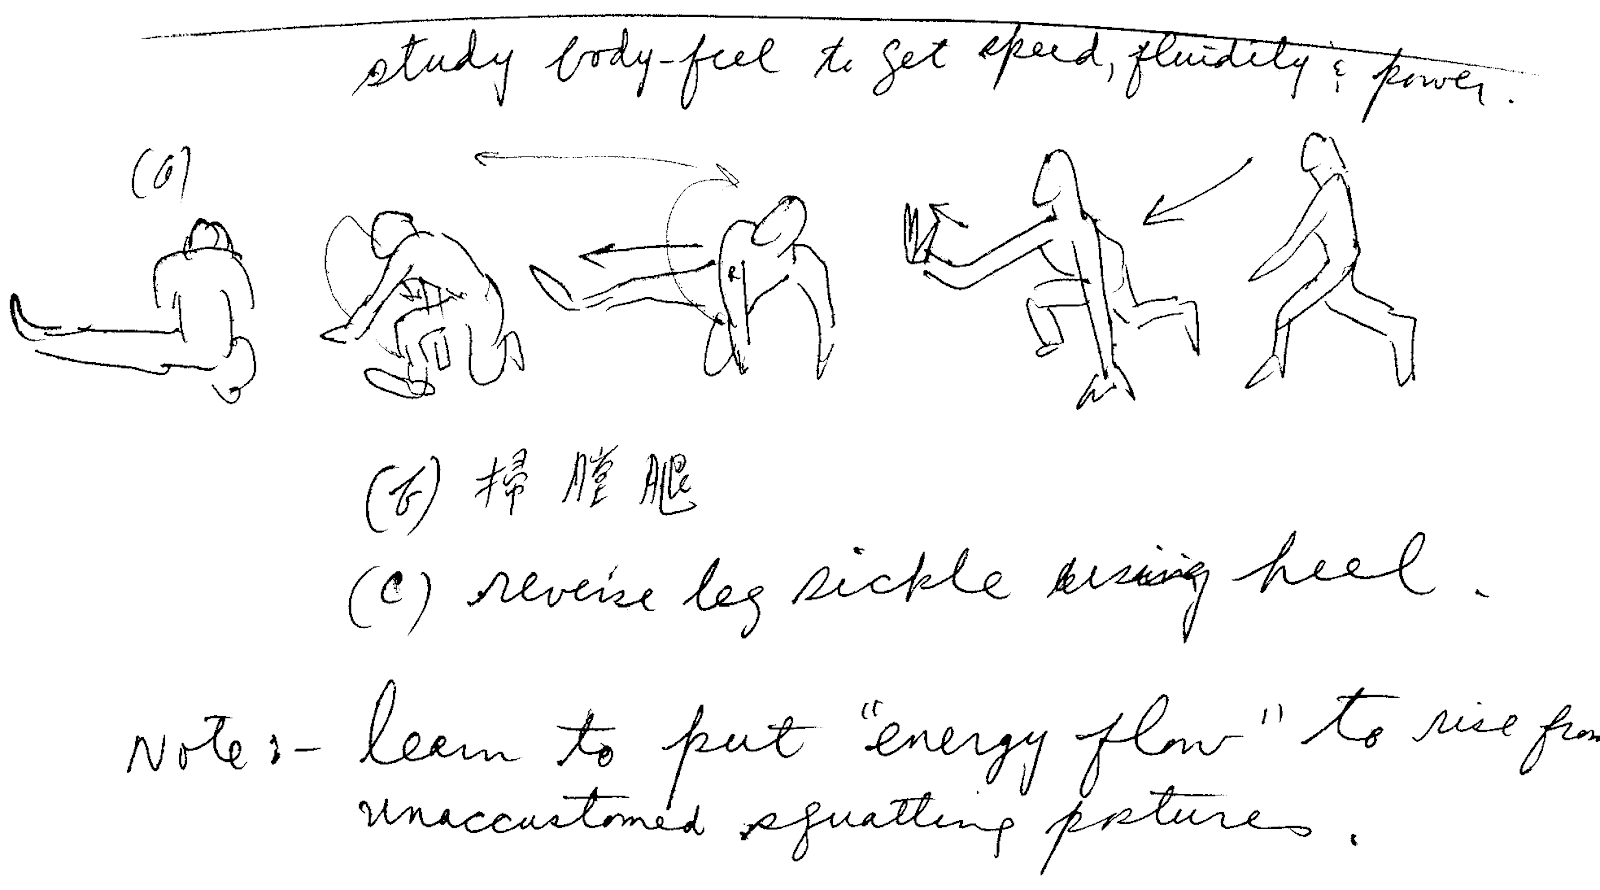 study body-feel to get speed, fluidity & power.
(a)
R
(b) 掃膛腿
(c) reverse leg sickle using heel.
Note:- learn to put "energy flow" to rise from
unaccustomed squatting postures.